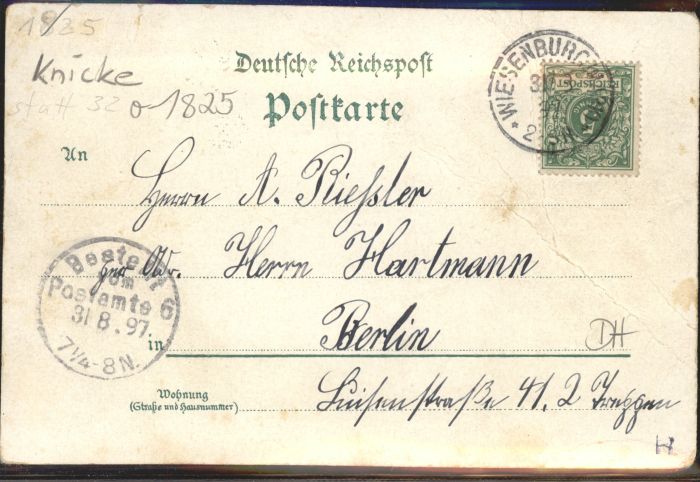 1835
Knicke
statt 32 0-1825
Deutsche Reichspost
Postkarte
WIESENBURG
REICHSPOST
An
Herrn A. Riessler
per Adr. Herrn Hartmann
in Berlin
DH
Bestellt
vom
Postamte 6
31 8.97.
7 1/4-8N.
Wohnung
(Straße und Hausnummer)
Luisenstraße 41. 2 Treppen
H